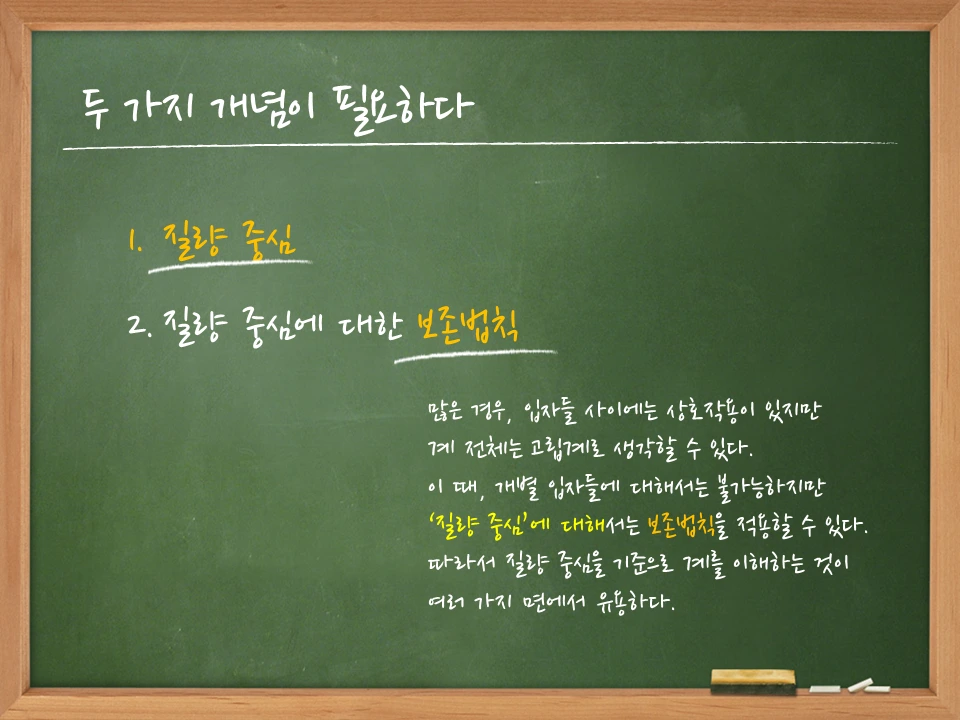 두 가지 개념이 필요하다
1. 질량 중심
2. 질량 중심에 대한 보존법칙
많은 경우, 입자들 사이에는 상호작용이 있지만
계 전체는 고립계로 생각할 수 있다.
이 때, 개별 입자들에 대해서는 불가능하지만
‘질량 중심’에 대해서는 보존법칙을 적용할 수 있다.
따라서 질량 중심을 기준으로 계를 이해하는 것이
여러 가지 면에서 유용하다.